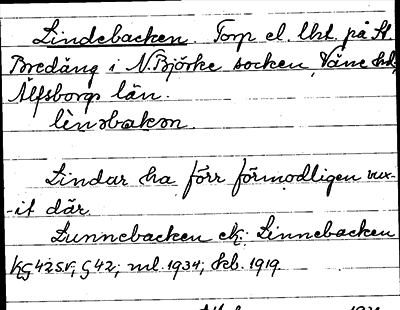 Lindebacken. Torp el. lht. på St.
Bredäng i N. Björke socken, Väne hd,
Älfsborgs län.
lìnəbakən.
Lindar ha förr förmodligen vux-
-it där.
Lunnebacken ek; Linnebacken
KG 42 s.v; G 42; ml. 1934; kb. 1919